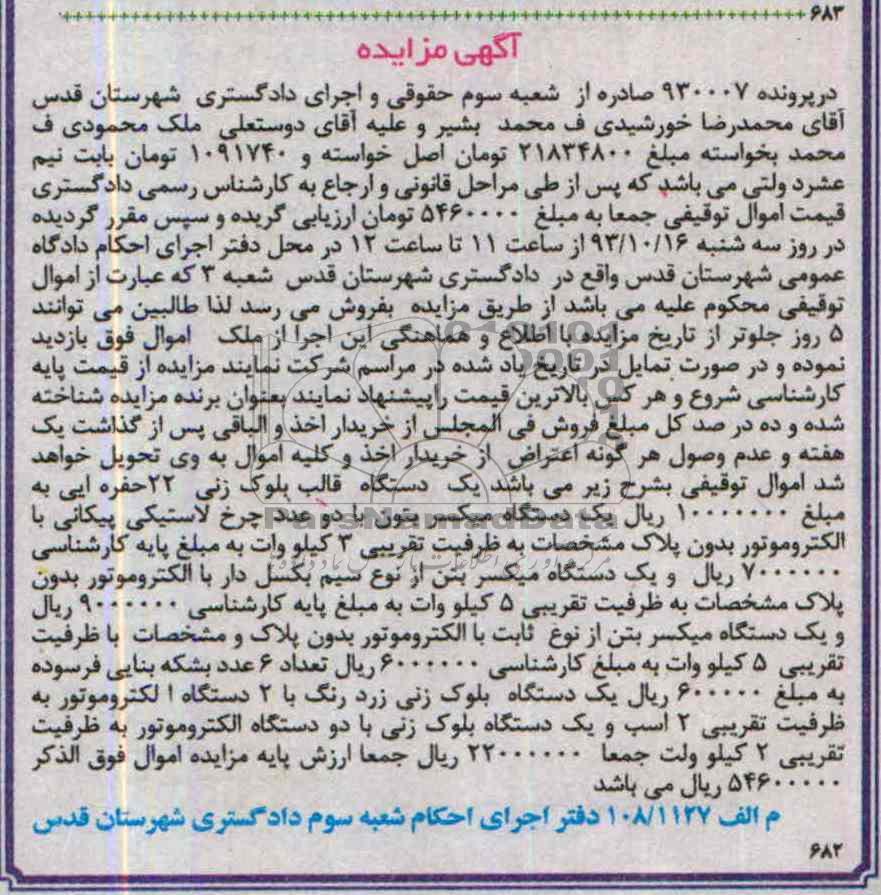 ۶۸۳
آگهی مزایده
درپرونده ۹۳۰۰۰۷ صادره از شعبه سوم حقوقی و اجرای دادگستری شهرستان قدس
آقای محمدرضا خورشیدی ف محمد بشیر و علیه آقای دوستعلی ملک محمودی ف
محمد بخواسته مبلغ ۲۱۸۳۴۸۰۰ تومان اصل خواسته و ۱۰۹۱۷۴۰ تومان بابت نیم
عشرد ولتی می باشد که پس از طی مراحل قانونی و ارجاع به کارشناس رسمی دادگستری
قیمت اموال توقیفی جمعا به مبلغ ۵۴۶۰۰۰۰ تومان ارزیابی گریده و سپس مقرر گردیده
در روز سه شنبه ۹۳/۱۰/۱۶ از ساعت ۱۱ تا ساعت ۱۲ در محل دفتر اجرای احکام دادگاه
عمومی شهرستان قدس واقع در دادگستری شهرستان قدس شعبه ۳ که عبارت از اموال
توقیفی محکوم علیه می باشد از طریق مزایده بفروش می رسد لذا طالبین می توانند
۵ روز جلوتر از تاریخ مزایده با اطلاع و هماهنگی این اجرا از ملک اموال فوق بازدید
نموده و در صورت تمایل در تاریخ یاد شده در مراسم شرکت نمایند مزایده از قیمت پایه
کارشناسی شروع و هر کس بالاترین قیمت راپیشنهاد نمایند بعنوان برنده مزایده شناخته
شده و ده در صد کل مبلغ فروش فی المجلس از خریدار اخذ و الباقی پس از گذاشت یک
هفته و عدم وصول هر گونه اعتراض از خریدار اخذ و کلیه اموال به وی تحویل خواهد
شد اموال توقیفی بشرح زیر می باشد یک دستگاه قالب بلوک زنی ۲۲حفره ایی به
مبلغ ۱۰۰۰۰۰۰۰ ریال یک دستگاه میکسر بتون با دو عدد چرخ لاستیکی پیکانی با
الکتروموتور بدون پلاک مشخصات به ظرفیت تقریبی ۳ کیلو وات به مبلغ پایه کارشناسی
۷۰۰۰۰۰۰ ریال و یک دستگاه میکسر بتن از نوع سیم بکسل دار با الکتروموتور بدون
پلاک مشخصات به ظرفیت تقریبی ۵ کیلو وات به مبلغ پایه کارشناسی ۹۰۰۰۰۰۰ ریال
و یک دستگاه میکسر بتن از نوع ثابت با الکتروموتور بدون پلاک و مشخصات با ظرفیت
تقریبی ۵ کیلو وات به مبلغ کارشناسی ۶۰۰۰۰۰۰ ریال تعداد ۶ عدد بشکه بنایی فرسوده
به مبلغ ۶۰۰۰۰۰ ریال یک دستگاه بلوک زنی زرد رنگ با ۲ دستگاه ا لکتروموتور به
ظرفیت تقریبی ۲ اسب و یک دستگاه بلوک زنی با دو دستگاه الکتروموتور به ظرفیت
تقریبی ۲ کیلو ولت جمعا ۲۲۰۰۰۰۰۰ ریال جمعا ارزش پایه مزایده اموال فوق الذکر
۵۴۶۰۰۰۰۰ ریال می باشد
م الف ۱۰۸/۱۱۲۷ دفتر اجرای احکام شعبه سوم دادگستری شهرستان قدس
۶۸۲
ParsNamadData